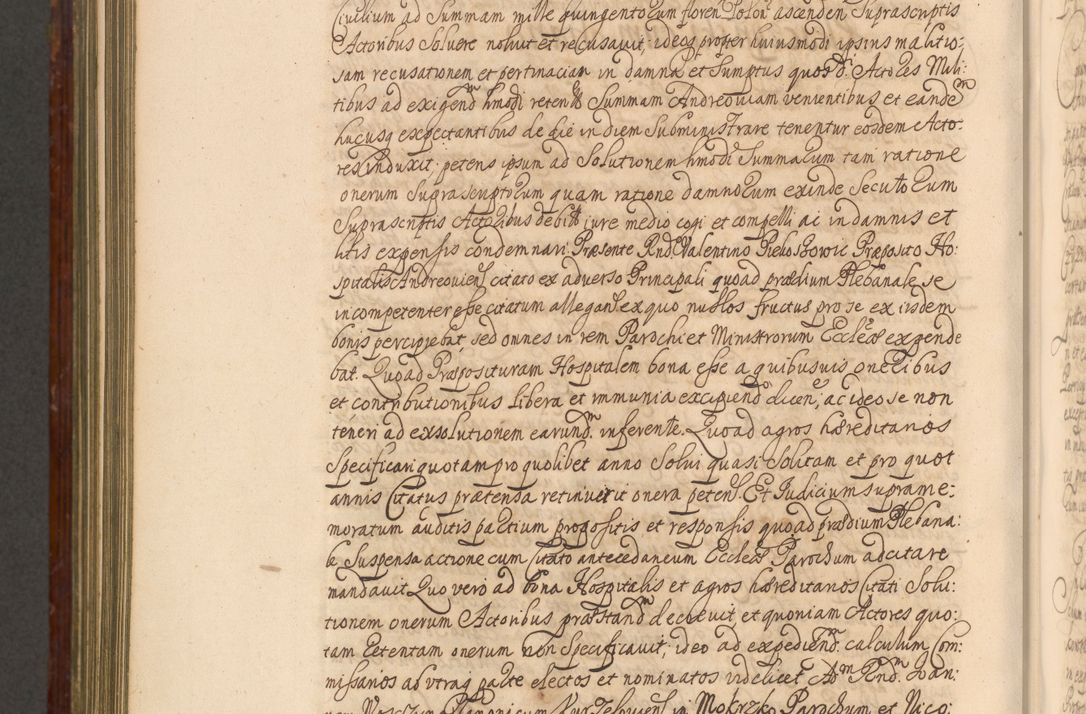 Civilium ad Summam mille quingentorum floren Polon ascenden Suprascriptis
Actoribus Solvere noluit et recusavit, ideoq propter huiusmodi ipsius malitio-
sam recusationem et pertinaciam in damna et Sumptus quos d. Actores Mili-
tibus ad exigend hmodi retent Summam Andreoviam venientibus et eandem
hucusq expectantibus de die in diem Subministrare tenentur eosdem Acto-
res induxit; petens ipsum ad Solutionem hmodi Summarum tam ratione
onerum Suprascriptorum quam ratione damnorum exinde Secutorum
Suprascriptis Actoribus debit iure medio cogi et compelli ac in damnis et
litis expensis condemnari. Præsente Rnd Valentino Præposito Ho-
spitalis Andreovien citato ex adverso Principali quoad prædium Plebanale se
incompetenter esse citatum allegante ex quo nullos fructus pro se ex iisdem
bonis percipiebat, sed omnes in rem Parochi et Ministrorum Eccleæ exigende
bat. Quoad Præposituram Hospitalem bona esse a quibusvis oneribus
et contributionibus libera et immunia excipiend dicen, ac ideo se non
teneri ad exsolutionem earund inferente. Quoad agros hæreditarios
Specificari quotam pro quolibet anno Solvi quasi Solitam et pro quot
annis Citatus prætensa retinuerit onera peten. Et Iudicium suprame-
moratum auditis partium propositis et responsis quoad prædium Plebana-
le Suspensa actione cum Citato antecedaneum Eccleæ Parochum adcitare
mandavit Quo vero ad bona Hospitalis et agros hæreditarios Citati Solu-
tionem onerum Actoribus præstand decrevit et quoniam Actores quo-
tam retentam onerum non Specificavit, ideo ad expediend calculum Com-
missarios ab utraq parte electos et nominatos videlicet Adm Rnd Joan-
nem Canonicum in Mokrzko Parochum et Nico-